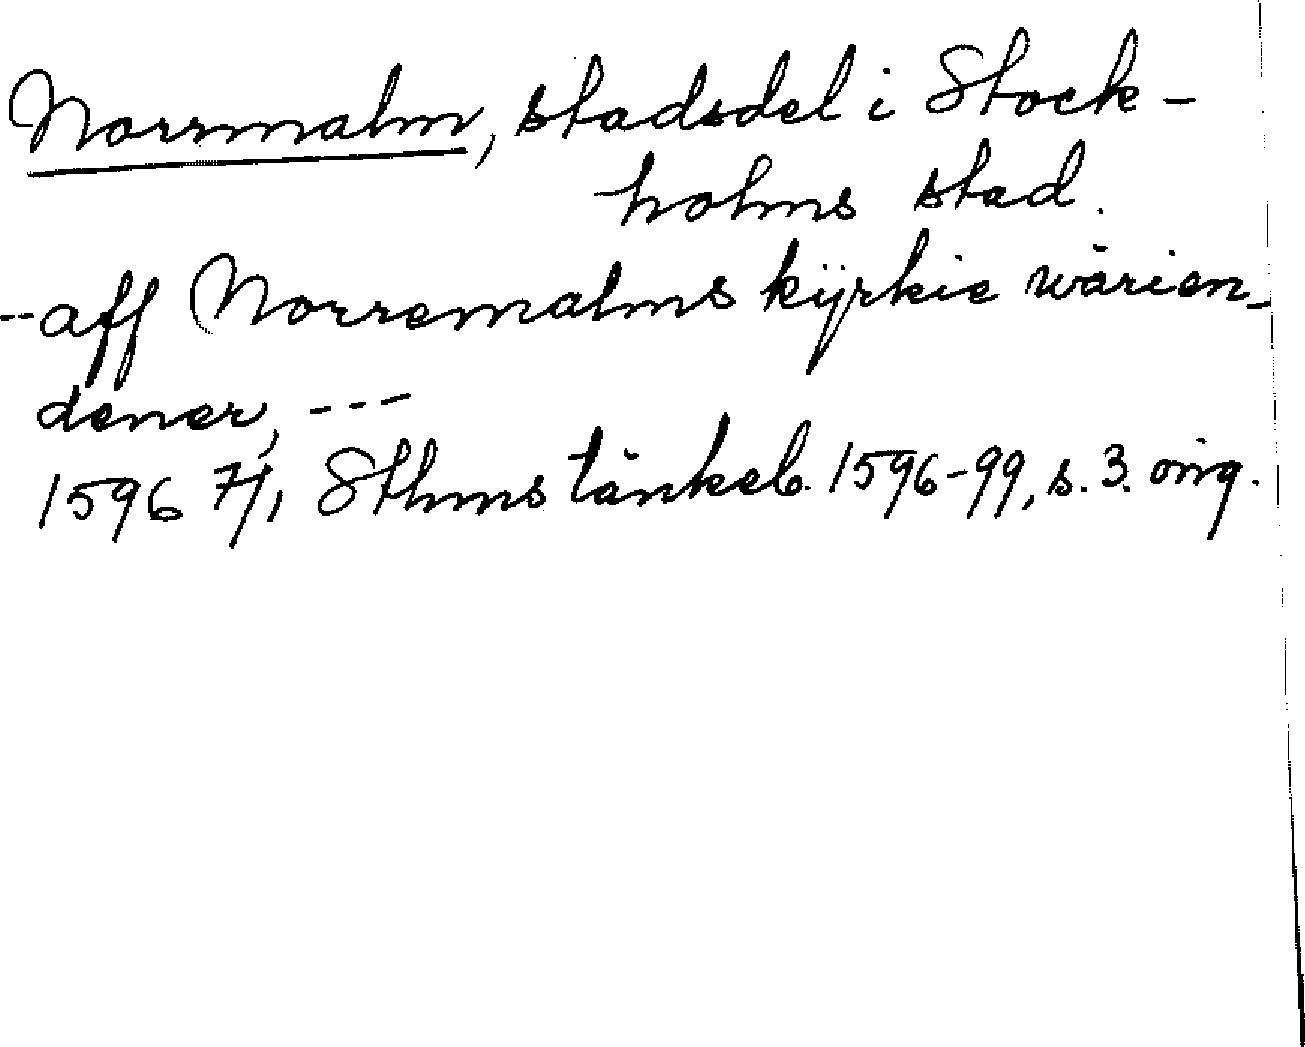 Norrmalm, stadsdel i Stock-
holms stad.
--aff Norremalms kÿrkie wärien-
dener, ---
1596 7/1, Sthms tänkeb. 1596-99, s. 3. orig.